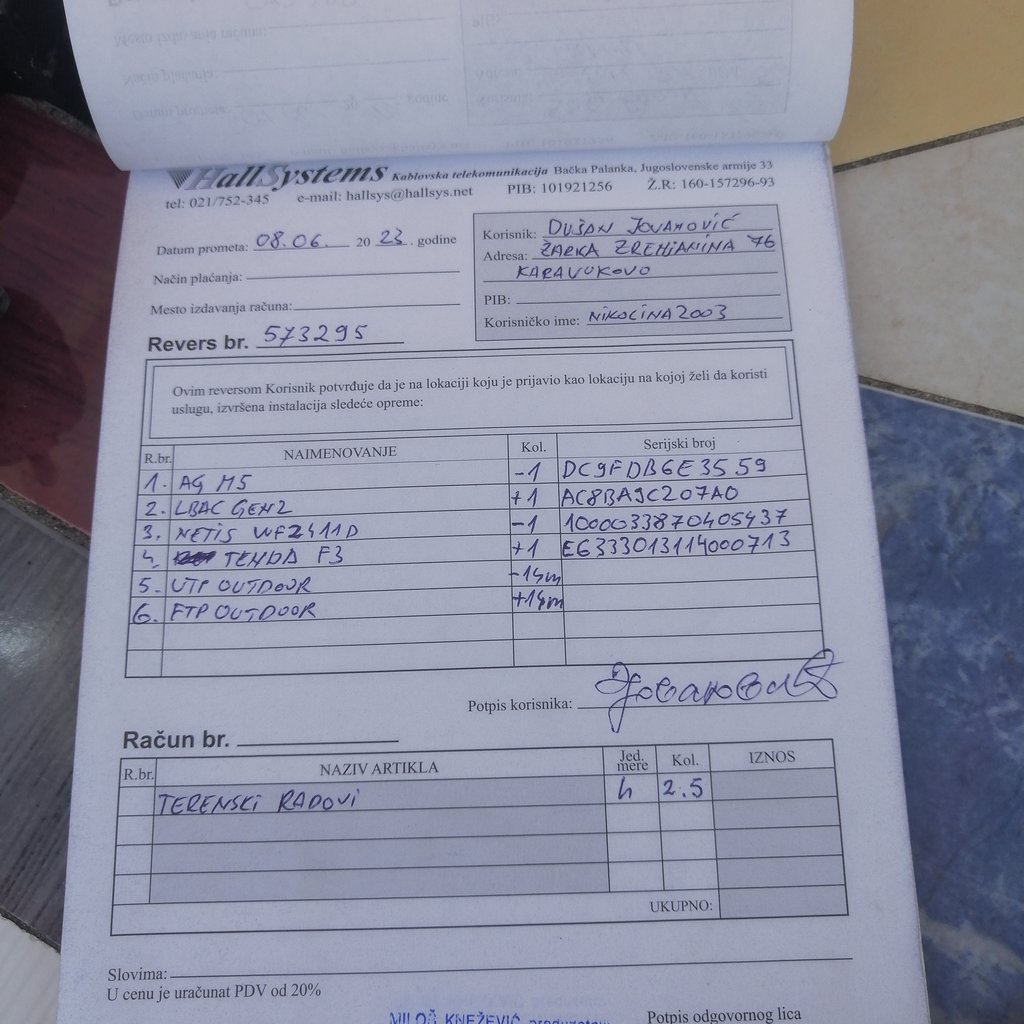 HallSystems Kablovska telekomunikacija Bačka Palanka, Jugoslovenske armije 33
tel: 021/752-345 e-mail: hallsys@hallsys.net PIB: 101921256 Ž.R: 160-157296-93
Datum prometa: 08.06. 20 23. godine
Način plaćanja:
Mesto izdavanja računa:
Revers br. 573295
Korisnik: DUŠAN JOVANOVIĆ
Adresa: ŽARKA ZRENJANINA 76
KARAVUKOVO
PIB:
Korisničko ime: NIKOLINA2003
Ovim reversom Korisnik potvrđuje da je na lokaciji koju je prijavio kao lokaciju na kojoj želi da koristi
uslugu, izvršena instalacija sledeće opreme:
R.br. NAIMENOVANJE Kol. Serijski broj
1. AG M5 -1 DC9FDB6E3559
2. LBAC GEN2 +1 AC8BA9C207A0
3. NETIS WF2411D -1 1000033870405437
4. TENDA F3 +1 E6333013114000713
5. UTP OUTDOOR -14m
6. FTP OUTDOOR +14m
Potpis korisnika:
Račun br.
R.br. NAZIV ARTIKLA Jed. mere Kol. IZNOS
TERENSKI RADOVI h 2.5
UKUPNO:
Slovima:
U cenu je uračunat PDV od 20%
MILOŠ KNEŽEVIĆ
Potpis odgovornog lica